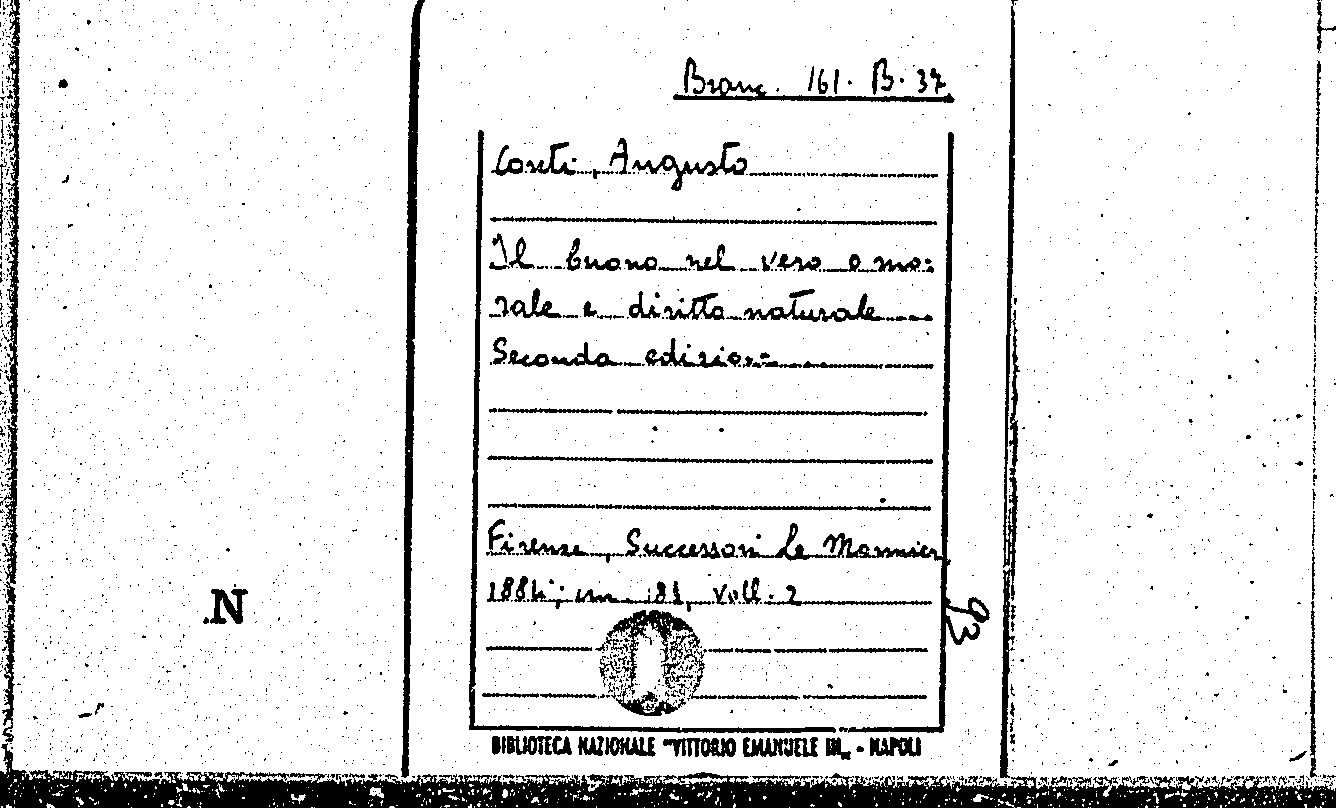 Branc. 161. B. 37
Conti, Augusto
Il buono nel vero o mo=
rale e diritto naturale
Seconda edizio=
Firenze, Successori Le Monnier,
1884; cm. 18, voll. 2
93
.N
BIBLIOTECA NAZIONALE "VITTORIO EMANUELE III„ - NAPOLI